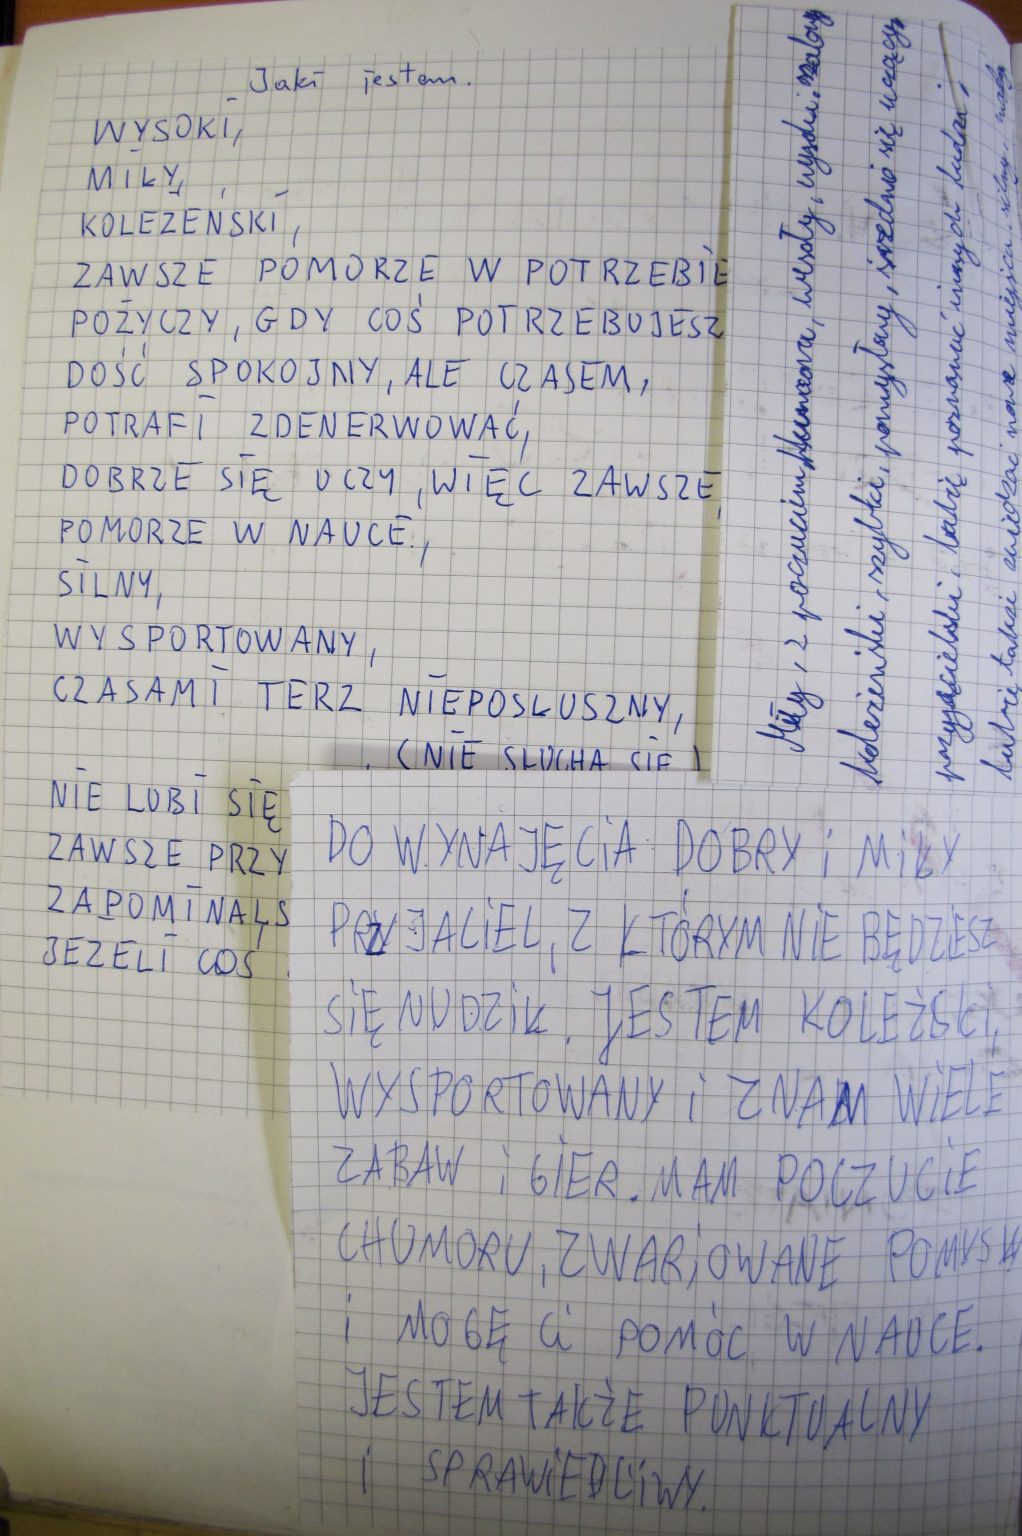 Jaki jestem.
WYSOKI,
MIŁY,
KOLEŻEŃSKI,
ZAWSZE POMORZE W POTRZEBIE
POŻYCZY, GDY COŚ POTRZEBUJESZ
DOŚĆ SPOKOJNY, ALE CZASEM,
POTRAFI ZDENERWOWAĆ,
DOBRZE SIĘ UCZY, WIĘC ZAWSZE,
POMORZE W NAUCE.,
SILNY,
WYSPORTOWANY,
CZASAMI TERZ NIEPOSŁUSZNY,
(NIE SŁUCHA SIĘ)
NIE LUBI SIĘ
ZAWSZE PRZY
ZAPOMINAŁS
JEZELI COŚ
Miły, z poczuciem humoru, wesoły, wysoki,
koleżeński, szybki, pomysłowy, średnio się uczący,
przyjacielski, lubię poznawać innych ludzi,
lubię także zwiedzać nowe miejsca, silny,
DO WYNAJĘCIA DOBRY i MIŁY
PRZYJACIEL, Z KTÓRYM NIE BĘDZIESZ
SIĘ NUDZIŁ. JESTEM KOLEŻSKI,
WYSPORTOWANY i ZNAM WIELE
ZABAW i GIER. MAM POCZUCIE
CHUMORU, ZWARIOWANE POMYSŁY
i MOGĘ CI POMÓC W NAUCE.
JESTEM TAKŻE PUNKTUALNY
i SPRAWIEDLIWY.